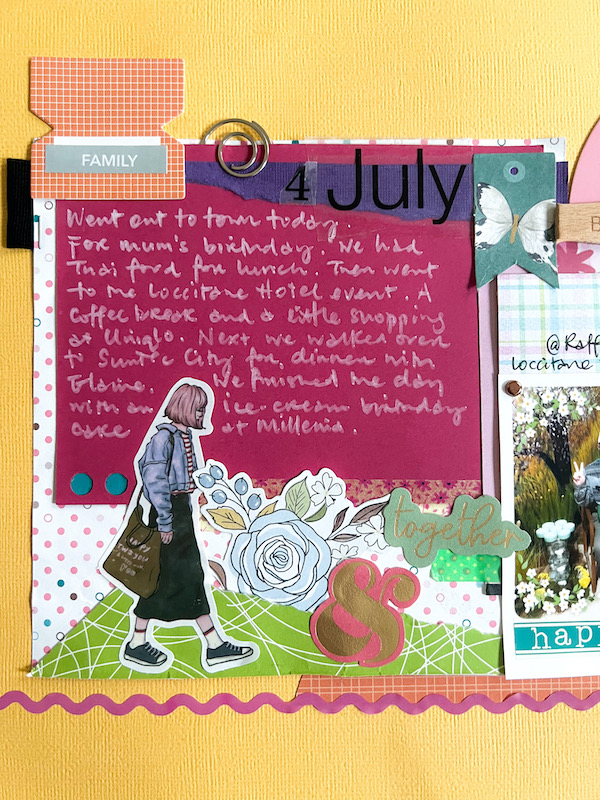 FAMILY
4 July
Went out to town today.
For mum's birthday. We had
Thai food for lunch. Then went
to the Loccitane Hotel event. A
coffee break and a little shopping
at Uniqlo. Next we walked over
to Suntec City for dinner with
Elaine. We finished the day
with an ice-cream birthday
cake at Millenia.
B
@Raff
Loccitane
together
&
hap